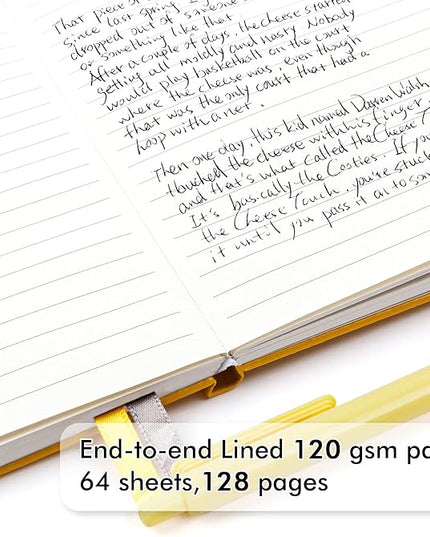 That piece of
since last spring
dropped out of someone
or something like that
After a couple of days, the cheese started
getting all moldly and nasty. Nobody
would play basketball on the court
where the cheese was, even though
that was the only court that had a
hoop with a net.
Then one day, this kid named Darren Walsh
touched the cheese with his finger,
and that's what called the Cheese
It's basically the Cooties. If you
the Cheese Touch, you're stuck
it until you pass it on to so
End-to-end Lined 120 gsm pa
64 sheets,128 pages